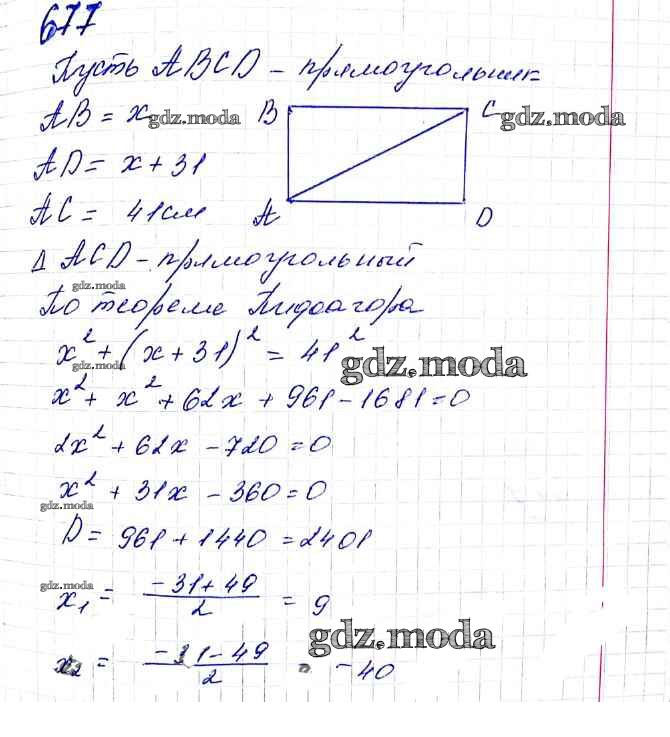 677
Пусть ABCD - прямоугольник
AB = x gdz.moda
B C gdz.moda
AD = x + 31
AC = 41 см
A D
Δ ACD - прямоугольный
gdz.moda
По теореме Пифагора
x² + (x + 31)² = 41²
gdz.moda gdz.moda
x² + x² + 62x + 961 - 1681 = 0
2x² + 62x - 720 = 0
x² + 31x - 360 = 0
gdz.moda
D = 961 + 1440 = 2401
gdz.moda
x₁ = (-31 + 49)/2 = 9
gdz.moda
x₂ = (-31 - 49)/2 = -40